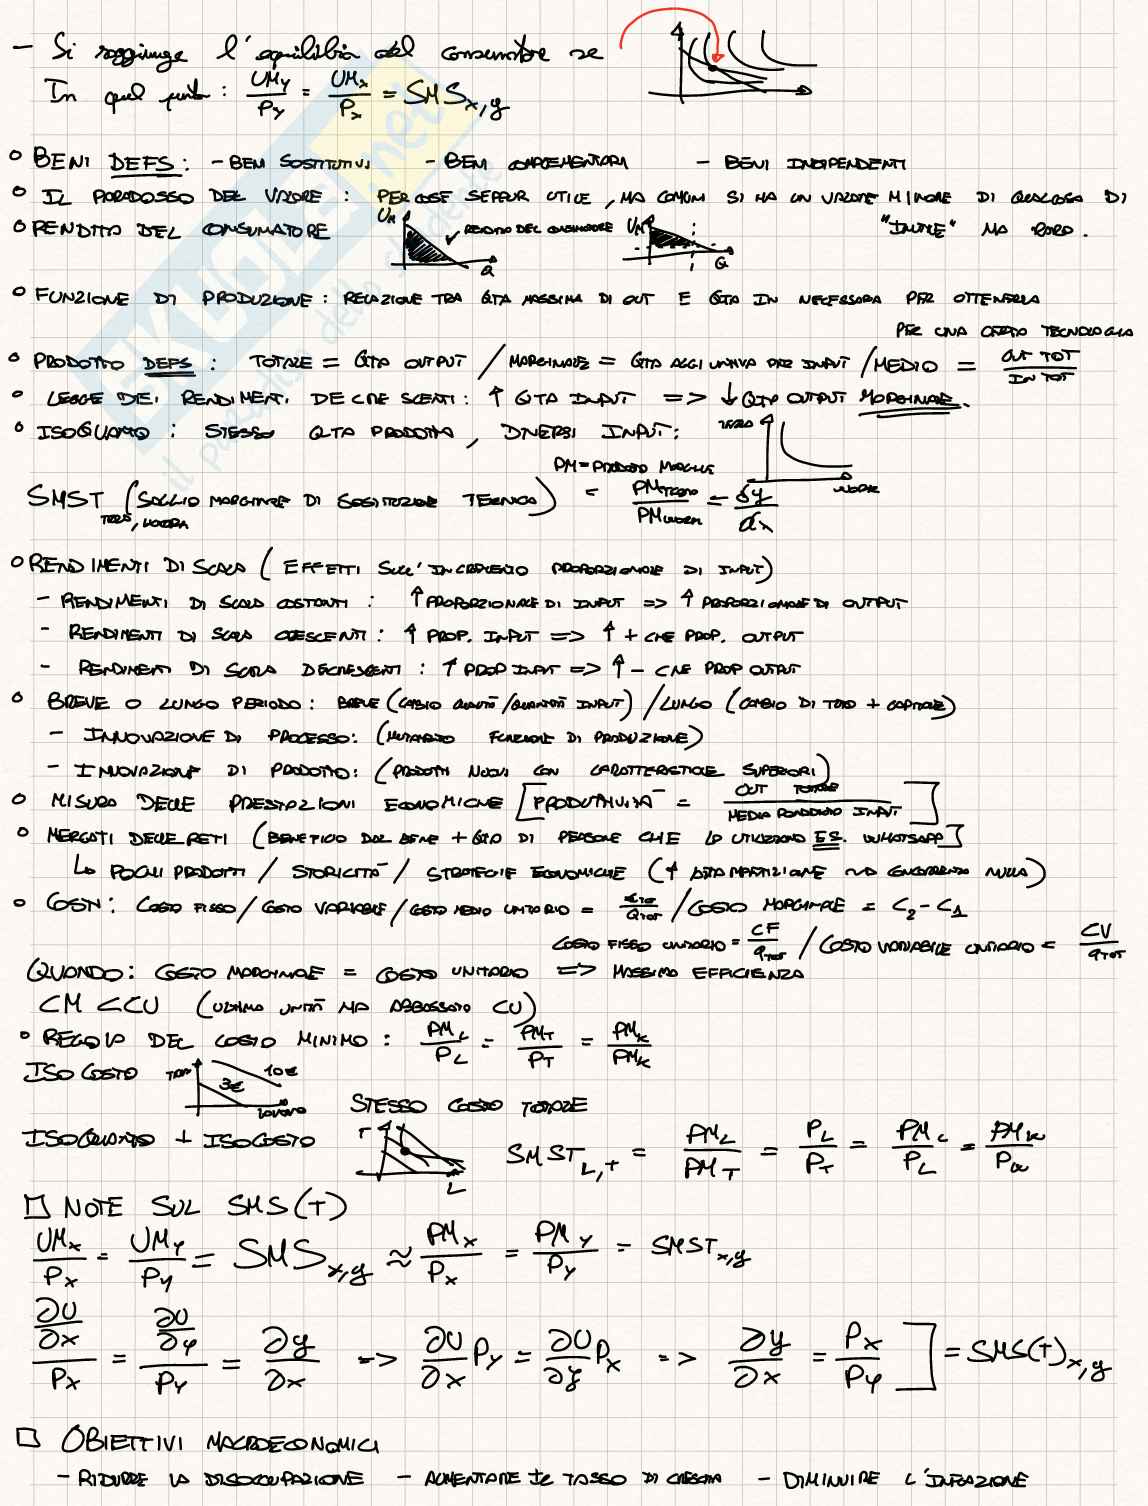 - Si raggiunge l'equilibrio del consumatore se
In quel punto : UMy/Py = UMx/Px = SMSx,y
○ BENI DEFS : - BENI SOSTITUTIVI - BENI COMPLEMENTARI - BENI INDIPENDENTI
○ IL PARADOSSO DEL VALORE : PER COSE SEPPUR UTILI, MA COMUNI SI HA UN VALORE MINORE DI QUALCOSA DI
"INUTILE" MA RARO.
○ RENDITA DEL CONSUMATORE UM ✓ RENDITA DEL CONSUMATORE Q UM Q
○ FUNZIONE DI PRODUZIONE : RELAZIONE TRA QTA MASSIMA DI OUT E QTA IN NECESSARIA PER OTTENERLA
PER UNA CERTA TECNOLOGIA
○ PRODOTTO DEFS : TOTALE = QTA OUTPUT / MARGINALE = QTA AGGIUNTIVA PER INPUT / MEDIO = OUT TOT/IN TOT
○ LEGGE DEI RENDIMENTI DECRESCENTI : ↑ QTA INPUT => ↓ QTA OUTPUT MARGINALE.
○ ISOQUANTO : STESSA QTA PRODOTTA, DIVERSI INPUT : TERRA LAVORO
PM = PRODOTTO MARGINALE
SMST TERRA, LAVORO (SAGGIO MARGINALE DI SOSTITUZIONE TECNICA) = PM TERRA/PM LAVORO = dy/dx
○ RENDIMENTI DI SCALA (EFFETTI SULL'INCREMENTO PROPORZIONALE DI INPUT)
- RENDIMENTI DI SCALA COSTANTI : ↑ PROPORZIONALE DI INPUT => ↑ PROPORZIONALE DI OUTPUT
- RENDIMENTI DI SCALA CRESCENTI : ↑ PROP. INPUT => ↑ + CHE PROP. OUTPUT
- RENDIMENTI DI SCALA DECRESCENTI : ↑ PROP INPUT => ↑ - CHE PROP OUTPUT
○ BREVE O LUNGO PERIODO : BREVE (CAMBIO QUALITÀ/QUANTITÀ INPUT) / LUNGO (CAMBIO DI TUTTO + CAPITALE)
- INNOVAZIONE DI PROCESSO : (MUTANDO FUNZIONE DI PRODUZIONE)
- INNOVAZIONE DI PRODOTTO : (PRODOTTI NUOVI CON CARATTERISTICHE SUPERIORI)
○ MISURA DELLE PRESTAZIONI ECONOMICHE [PRODUTTIVITÀ = OUT TOTALE/MEDIA PONDERATA INPUT]
○ MERCATI DELLE RETI (BENEFICIO DAL BENE + QTA DI PERSONE CHE LO UTILIZZANO ES. WHATSAPP]
↳ POCHI PRODOTTI / STORICITÀ / STRATEGIE ECONOMICHE (↑ CONCORRENZA NULLA)
○ COSTI : COSTO FISSO / COSTO VARIABILE / COSTO MEDIO UNITARIO = CTOT/QTOT / COSTO MARGINALE = C2 - C1
COSTO FISSO UNITARIO = CF/qTOT / COSTO VARIABILE UNITARIO = CV/qTOT
QUANDO : COSTO MARGINALE = COSTO UNITARIO => MASSIMA EFFICIENZA
CM < CU (ULTIMA UNITÀ HA ABBASSATO CU)
○ REGOLA DEL COSTO MINIMO : PML/PL = PMT/PT = PMK/PMK
ISOCOSTO TERRA 3€ 10€ LAVORO STESSO COSTO TOTALE
ISOQUANTO + ISOCOSTO T L SMST L,T = PML/PMT = PL/PT = PML/PL = PMK/PK
□ NOTE SUL SMS(T)
UMx/Px = UMy/Py = SMSx,y ≈ PMx/Px = PMy/Py = SMSTx,y
∂U/∂x/Px = ∂U/∂y/Py = ∂y/∂x => ∂U/∂x Py = ∂U/∂y Px => ∂y/∂x = Px/Py ] = SMS(T)x,y
□ OBIETTIVI MACROECONOMICI
- RIDURRE LA DISOCCUPAZIONE - AUMENTARE IL TASSO DI CRESCITA - DIMINUIRE L'INFLAZIONE
SKUOLA.net
il paradiso dello studente